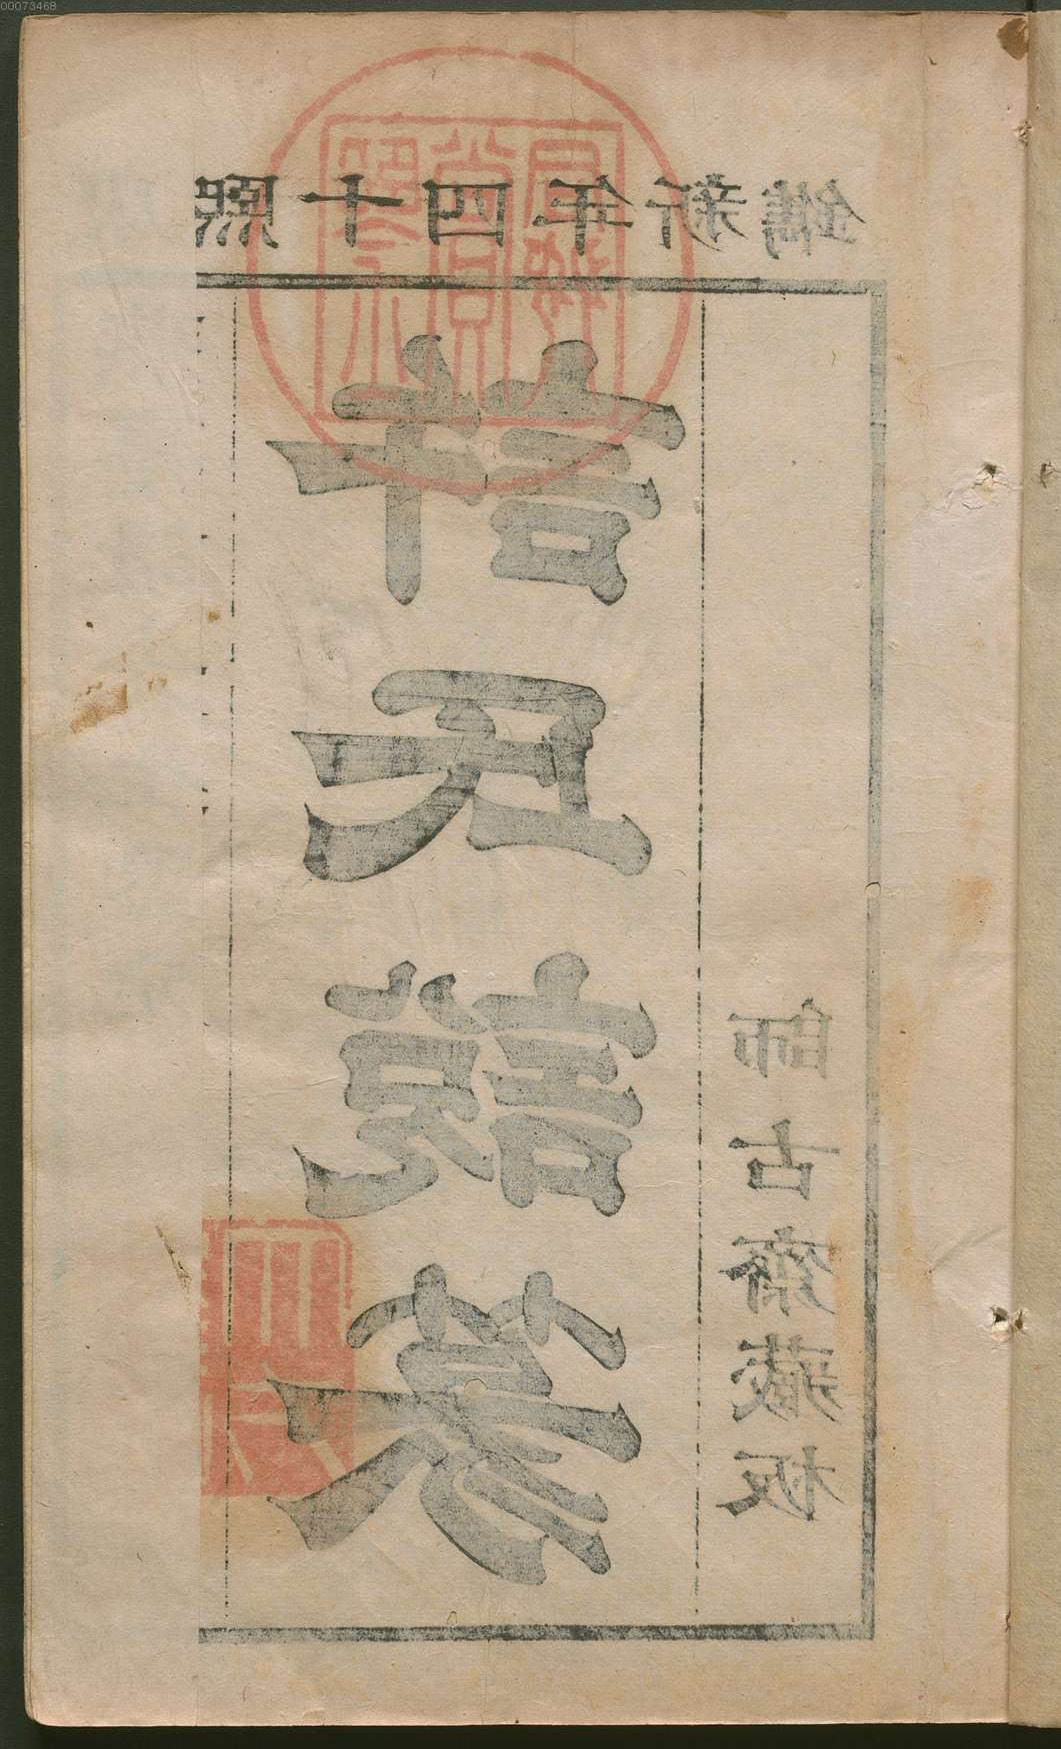 00073468
熙十四年新鐫
許氏說篆
師古齋藏板